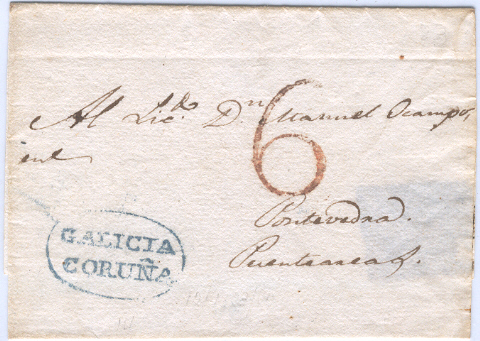 Al Lic.do Dn Manuel Ocampo,
6
Pontevedra.
GALICIA
CORUÑA